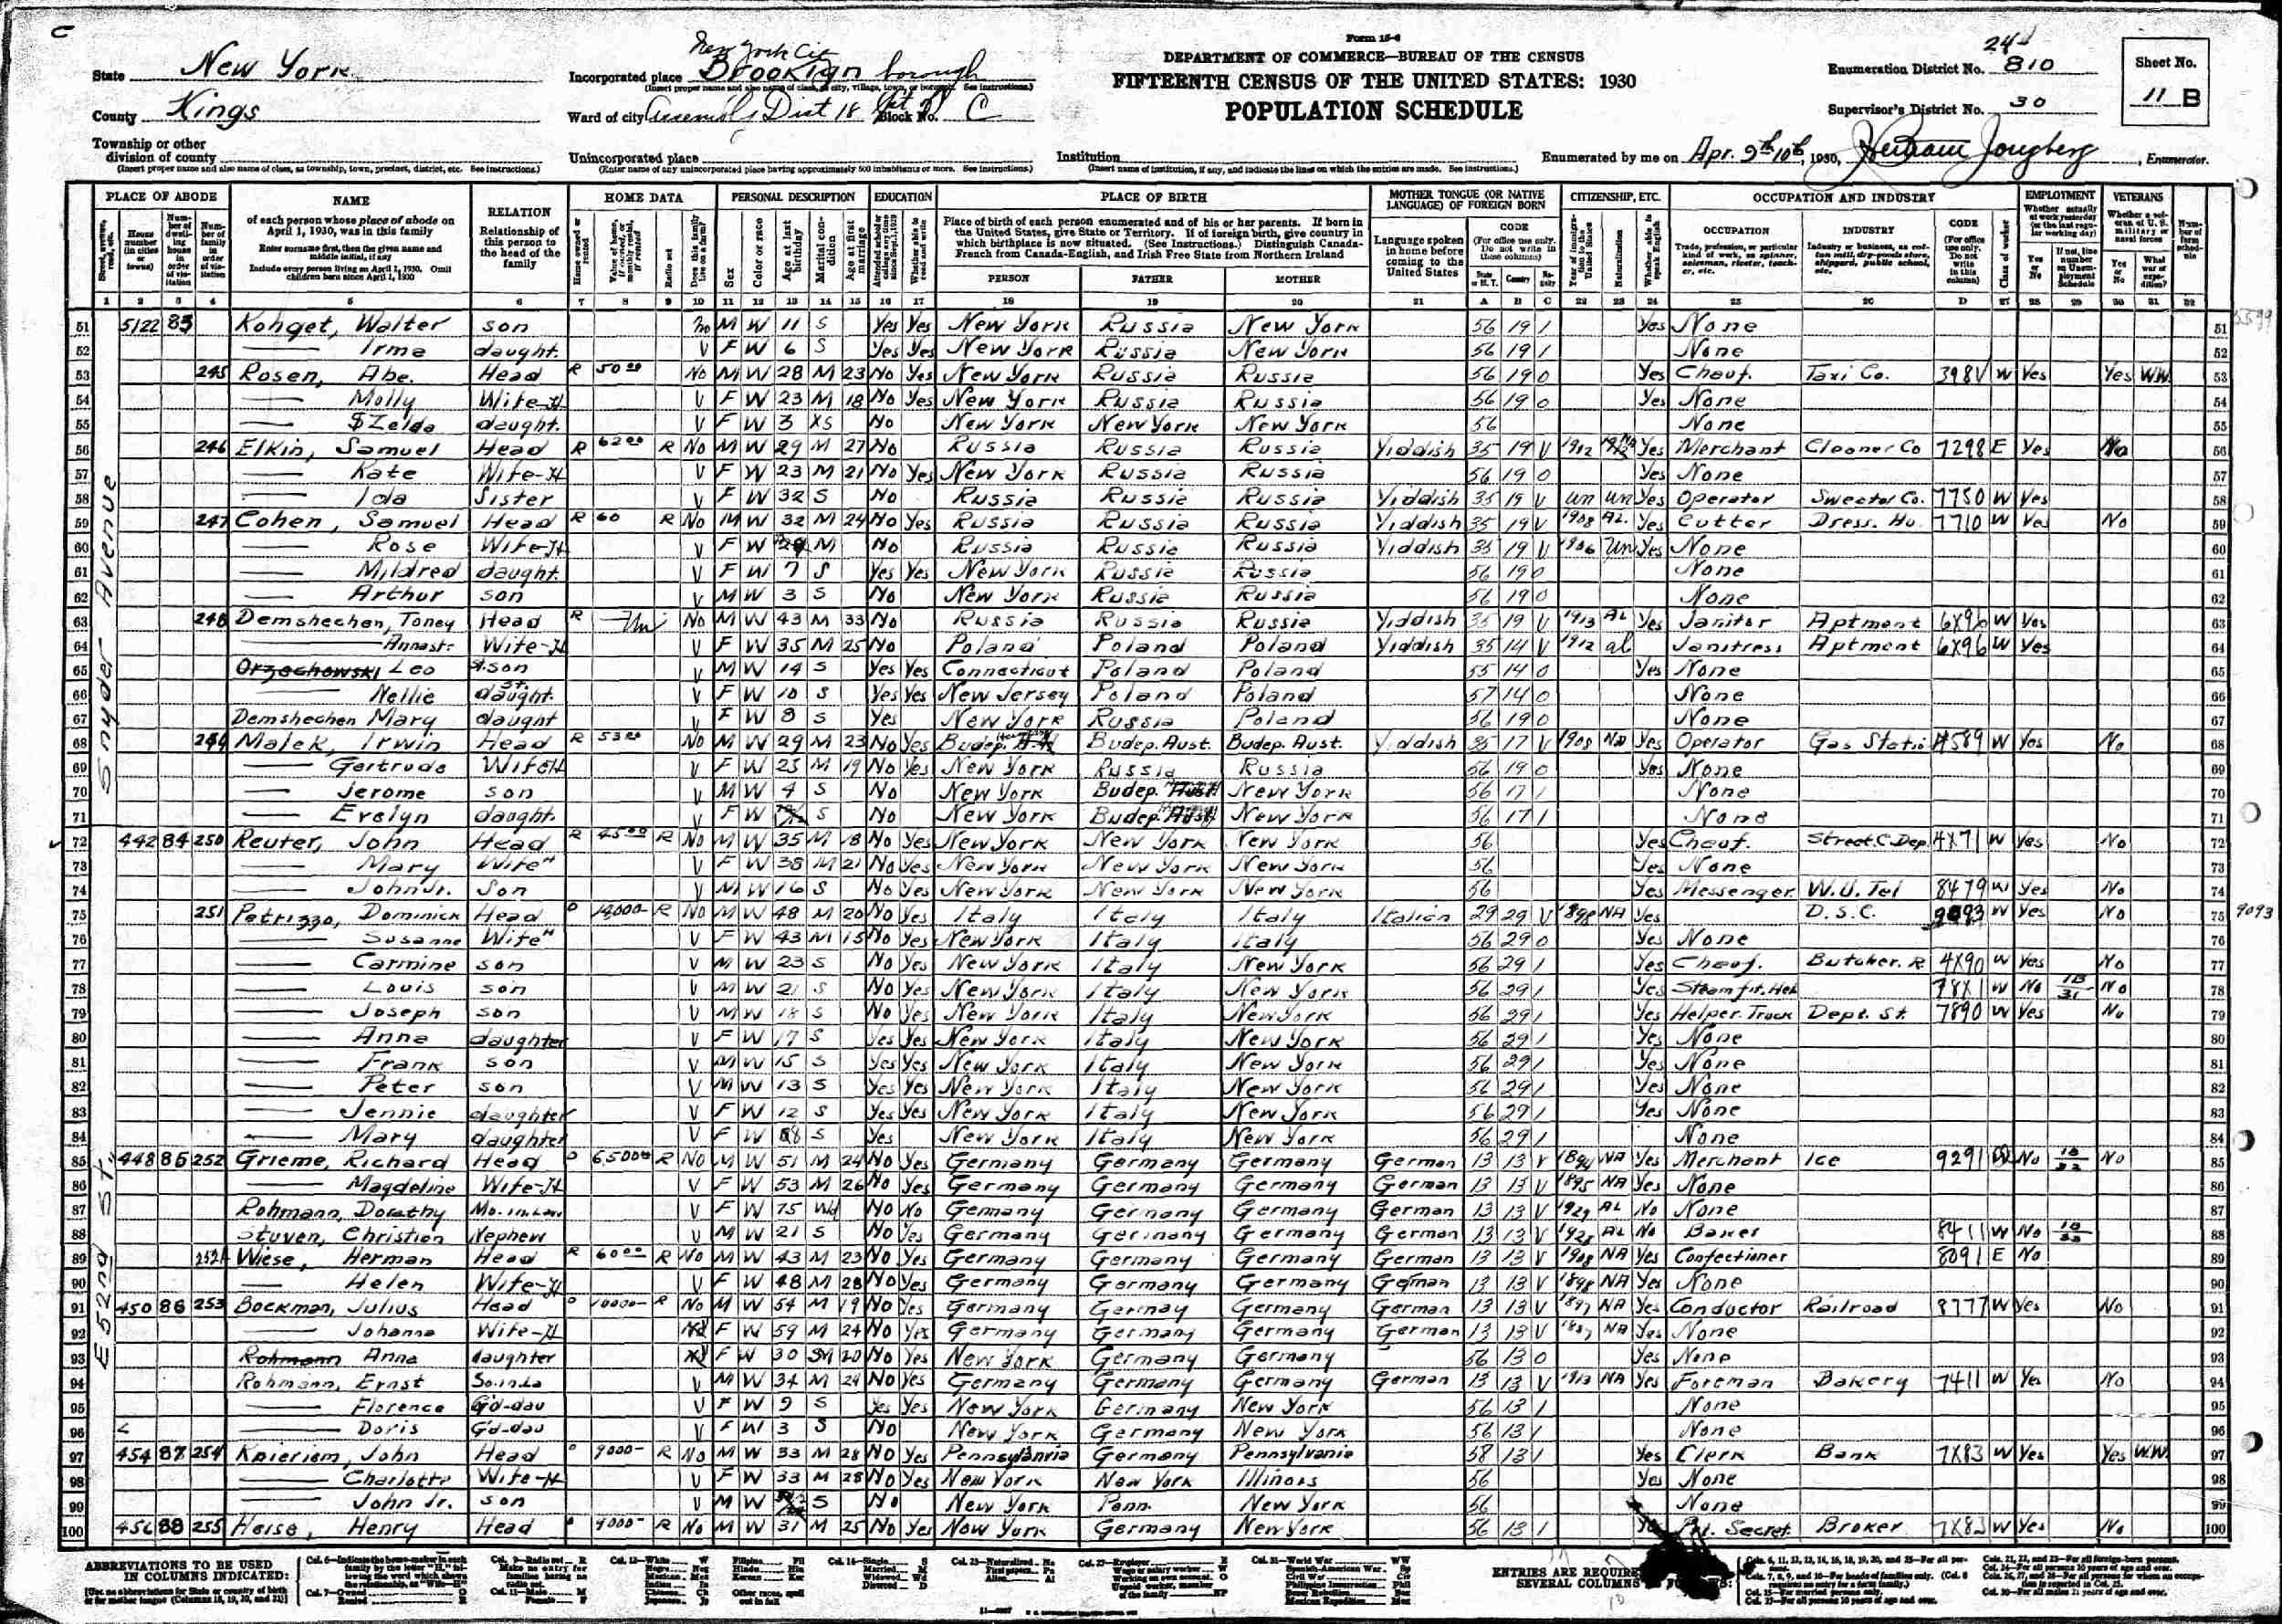 C
Form 15-6
DEPARTMENT OF COMMERCE—BUREAU OF THE CENSUS
FIFTEENTH CENSUS OF THE UNITED STATES: 1930
POPULATION SCHEDULE
State New York
County Kings
Township or other division of county
Incorporated place New York City Brooklyn borough
Ward of city Assembly Dist 18 Block No. C
Unincorporated place
Institution
Enumeration District No. 24-810
Supervisor's District No. 30
Sheet No. 11 B
Enumerated by me on Apr. 9th 10th, 1930, Enumerator.
PLACE OF ABODE NAME RELATION HOME DATA PERSONAL DESCRIPTION EDUCATION PLACE OF BIRTH MOTHER TONGUE (OR NATIVE LANGUAGE) OF FOREIGN BORN CITIZENSHIP, ETC. OCCUPATION AND INDUSTRY EMPLOYMENT VETERANS
of each person whose place of abode on April 1, 1930, was in this family
Enter surname first, then the given name and middle initial, if any
Include every person living on April 1, 1930. Omit children born since April 1, 1930
Relationship of this person to the head of the family
Place of birth of each person enumerated and of his or her parents. If born in the United States, give State or Territory. If of foreign birth, give country in which birthplace is now situated. (See Instructions.) Distinguish Canada-French from Canada-English, and Irish Free State from Northern Ireland
PERSON FATHER MOTHER
Language spoken in home before coming to the United States
CODE OCCUPATION INDUSTRY CODE
Snyder Avenue
51 5122 83 Konget, Walter son No M W 11 S Yes Yes New York Russia New York 56 19 1 Yes None 51
52 Irma daught. V F W 6 S Yes Yes New York Russia New York 56 19 1 None 52
53 245 Rosen, Abe. Head R 50 00 No M W 28 M 23 No Yes New York Russia Russia 56 19 0 Yes Chauf. Taxi Co. 398V W Yes Yes WW 53
54 Molly Wife-H V F W 23 M 18 No Yes New York Russia Russia 56 19 0 Yes None 54
55 Zelda daught. V F W 3 S No New York New York New York 56 None 55
56 246 Elkin, Samuel Head R 62 00 R No M W 29 M 27 No Russia Russia Russia Yiddish 35 19 V 1912 Na Yes Merchant Cleaner Co 7298 E Yes No 56
57 Kate Wife-H V F W 23 M 21 No Yes New York Russia Russia 56 19 0 Yes None 57
58 Ida Sister V F W 32 S No Russia Russia Russia Yiddish 35 19 V Un Un Yes Operator Sweeter Co. 7750 W Yes 58
59 247 Cohen, Samuel Head R 60 R No M W 32 M 24 No Yes Russia Russia Russia Yiddish 35 19 V 1908 AL. Yes Cutter Dress. Ho. 7710 W Yes No 59
60 Rose Wife-H V F W 29 M No Russia Russia Russia Yiddish 35 19 V 1906 Un Yes None 60
61 Mildred daught. V F W 7 S Yes Yes New York Russia Russia 56 19 0 None 61
62 Arthur son V M W 3 S No New York Russia Russia 56 19 0 None 62
63 248 Demshechen, Toney Head R Un No M W 43 M 33 No Russia Russia Russia Yiddish 35 19 V 1913 AL Yes Janitor Aptment 6X96 W Yes 63
64 Annast- Wife-H V F W 35 M 25 No Poland Poland Poland Yiddish 35 14 V 1912 al Janitress Aptment 6X96 W Yes 64
65 Orzechowski Leo S.son V M W 14 S Yes Yes Connecticut Poland Poland 55 14 0 Yes None 65
66 Nellie St daught. V F W 10 S Yes Yes New Jersey Poland Poland 57 14 0 None 66
67 Demshechen Mary daught V F W 8 S Yes New York Russia Poland 56 19 0 None 67
68 249 Malek, Irwin Head R 53 00 No M W 29 M 23 No Yes Budep. Hungary Budep. Aust. Budep. Aust. Yiddish 35 17 V 1908 Na Yes Operator Gas Statio 4589 W Yes No 68
69 Gertrude Wife H V F W 23 M 19 No Yes New York Russia Russia 56 19 0 Yes None 69
70 Jerome son V M W 4 S No New York Budep. New York 56 17 1 None 70
71 Evelyn daught. V F W S No New York Budep. New York 56 17 1 None 71
E 52nd St.
72 442 84 250 Reuter, John Head R 45 00 R No M W 35 M 18 No Yes New York New York New York 56 Yes Chauf. Street.C.Dep. 4X71 W Yes No 72
73 Mary Wife H V F W 38 M 21 No Yes New York New York New York 56 Yes None 73
74 John Jr. Son V M W 16 S No Yes New York New York New York 56 Yes Messenger. W.U. Tel 8479 W Yes No 74
75 251 Petrizzo, Dominick Head O 14000 R No M W 48 M 20 No Yes Italy Italy Italy Italian 29 29 V 1898 NA Yes D.S.C. 9093 W Yes No 75 9093
76 Susanne Wife H V F W 43 M 15 No Yes New York Italy Italy 56 29 0 Yes None 76
77 Carmine son V M W 23 S No Yes New York Italy New York 56 29 1 Yes Chauf. Butcher. R 4X90 W Yes No 77
78 Louis son V M W 21 S No Yes New York Italy New York 56 29 1 Yes Steamfit. Hel 78X1 W No 1B 31 No 78
79 Joseph son V M W 18 S No Yes New York Italy New York 56 29 1 Yes Helper. Truck Dept. St. 7890 W Yes No 79
80 Anna daughter V F W 17 S Yes Yes New York Italy New York 56 29 1 Yes None 80
81 Frank son V M W 15 S Yes Yes New York Italy New York 56 29 1 Yes None 81
82 Peter son V M W 13 S Yes Yes New York Italy New York 56 29 1 Yes None 82
83 Jennie daughter V F W 12 S Yes Yes New York Italy New York 56 29 1 Yes None 83
84 Mary daughter V F W 8 S Yes New York Italy New York 56 29 1 None 84
85 448 85 252 Grieme, Richard Head O 6,500 R No M W 51 M 24 No Yes Germany Germany Germany German 13 13 V 1894 NA Yes Merchant Ice 9291 O No No 85
86 Magdeline Wife-H V F W 53 M 26 No Yes Germany Germany Germany German 13 13 V 1895 NA Yes None 86
87 Rohmann, Dorathy Mo. in Law V F W 75 Wd No No Germany Germany Germany German 13 13 V 1929 AL No None 87
88 Stuven, Christian Nephew V M W 21 S No Yes Germany Germany Germany German 13 13 V 1928 AL No Baker 8411 W No 88
89 252A Wiese, Herman Head R 60 00 R No M W 43 M 23 No Yes Germany Germany Germany German 13 13 V 1908 NA Yes Confectioner 8091 E No 89
90 Helen Wife-H V F W 48 M 28 No Yes Germany Germany Germany German 13 13 V 1898 NA Yes None 90
91 450 86 253 Bockman, Julius Head O 10000 R No M W 54 M 19 No Yes Germany Germay Germany German 13 13 V 1897 NA Yes Conductor Railroad 8777 W Yes No 91
92 Johanna Wife-H F W 59 M 24 No Yes Germany Germany Germany German 13 13 V 1887 NA Yes None 92
93 Rohmann Anna daughter F W 30 M 20 No Yes New York Germany Germany 56 13 0 Yes None 93
94 Rohmann, Ernst So.in La V M W 34 M 24 No Yes Germany Germany Germany German 13 13 V 1913 NA Yes Foreman Bakery 7411 W Yes No 94
95 Florence G'd-dau V F W 9 S Yes Yes New York Germany New York 56 13 1 None 95
96 Doris G'd-dau V F W 3 S No New York Germany New York 56 13 1 None 96
97 454 87 254 Knieriem, John Head O 9000 R No M W 33 M 28 No Yes Pennsylvania Germany Pennsylvania 58 13 1 Yes Clerk Bank 7X83 W Yes Yes W.W. 97
98 Charlotte Wife-H V F W 33 M 28 No Yes New York New York Illinois 56 Yes None 98
99 John Jr. son V M W S No New York Penn. New York 56 None 99
100 456 88 255 Heise, Henry Head O 9000 R No M W 31 M 25 No Yes New York Germany New York 56 13 1 Secret. Broker 7X83 W Yes No 100
ABBREVIATIONS TO BE USED IN COLUMNS INDICATED:
ENTRIES ARE REQUIRED SEVERAL COLUMNS